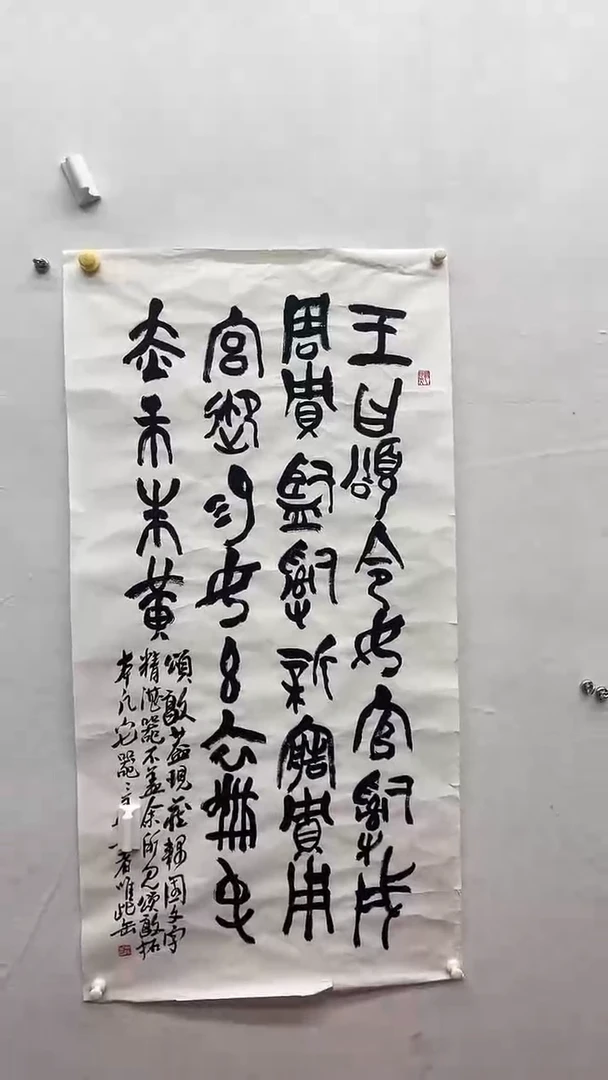 王曰頌令女官𤔲成
周貯監𤔲新造貯用
宮御易女玄衣黹屯
赤市朱黃
頌敦蓋現藏韓園文字
精湛器不蓋余所見頌敦拓
本凡 器三 者唯此缶